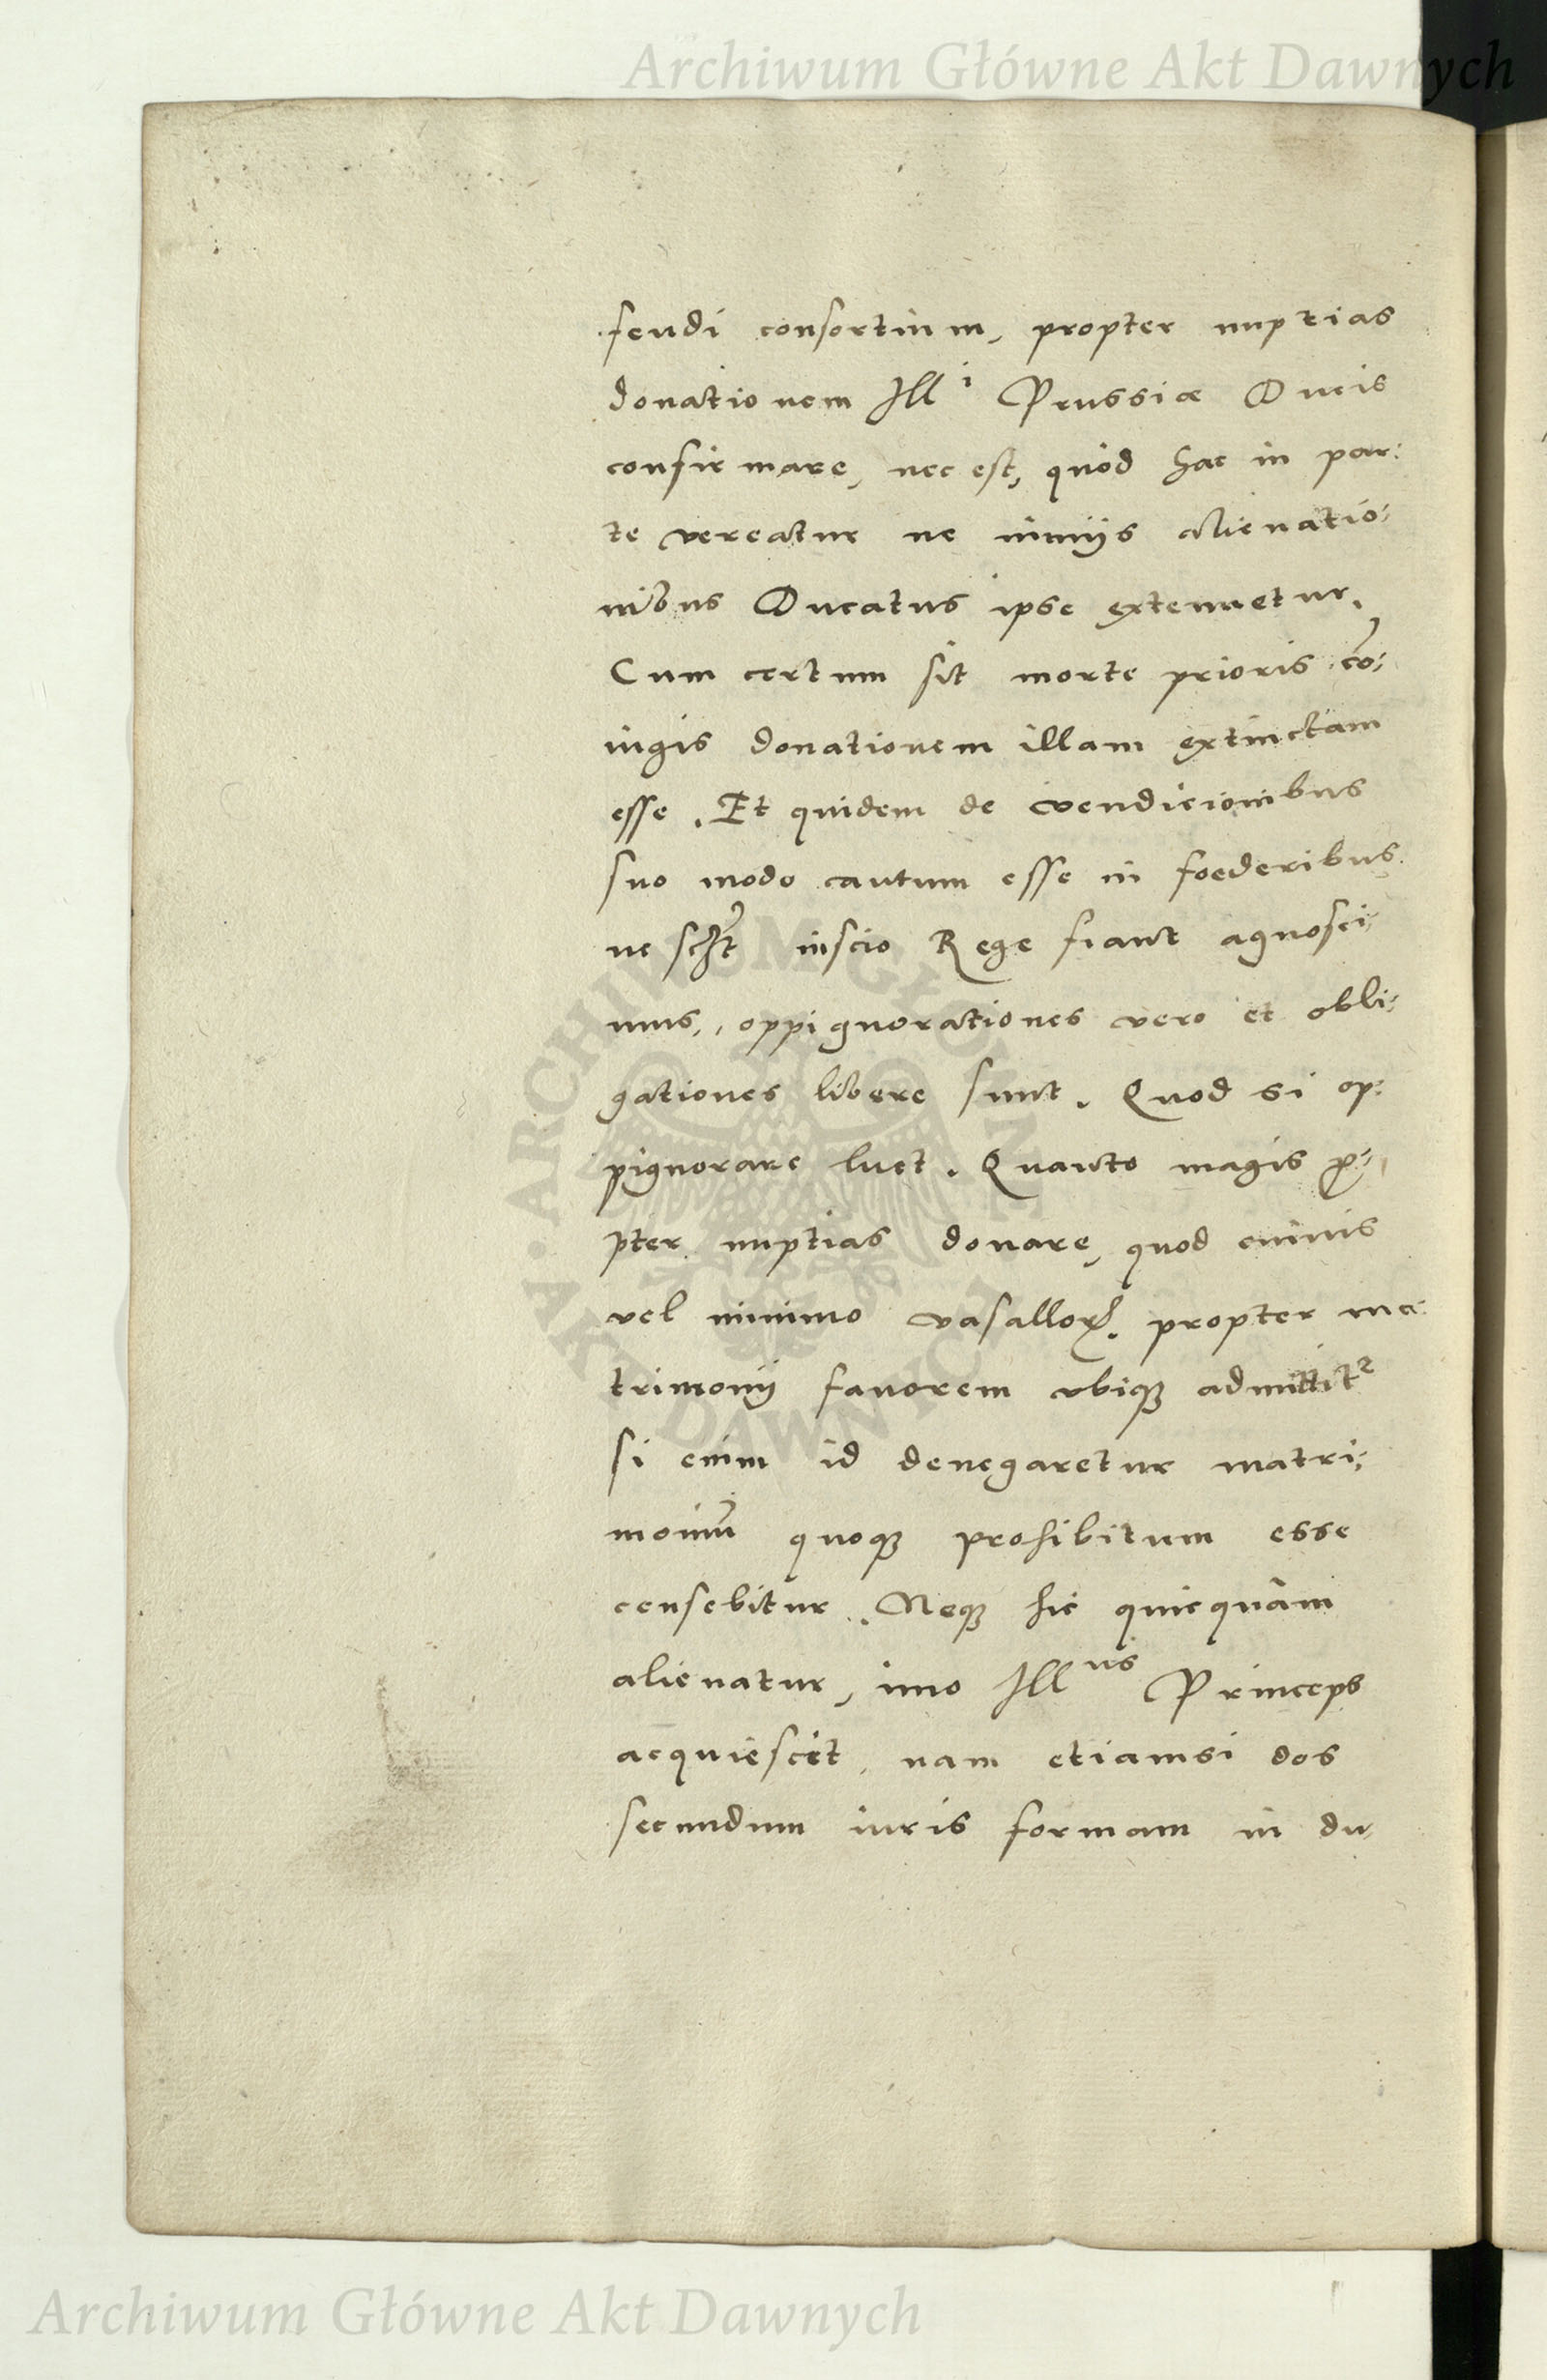 Archiwum Główne Akt Dawnych
feudi consortium, propter nuptias
donationem Ill^i Prussiæ Ducis
confirmare, nec est, quòd hac in par:
te vereatur ne nimijs alienatio:
nibus Ducatus ipse extenuetur,
Cum certum sit morte prioris cō:
iugis donationem illam extinctam
esse. Et quidem de vendicionibus
suo modo cautum esse in foederibus
ne inscio Rege fiant agnosci:
mus, oppignorationes vero et obli:
gationes libere sunt. Quod si op:
pignorare lucet. Quanto magis ꝓ:
pter nuptias donare, quod cuiuis
vel minimo vasalloꝝ. propter ma:
trimonij fauorem vbiqꝫ admittit^r
si enim id denegaretur matri:
moniū quoqꝫ prohibitum esse
censebitur. Neqꝫ hic quicquàm
alienatur, imo Ill^us Princeps
acquiescit, nam etiamsi dos
secundum iuris formam in du:
ARCHIWUM GŁÓWNE AKT DAWNYCH
Archiwum Główne Akt Dawnych